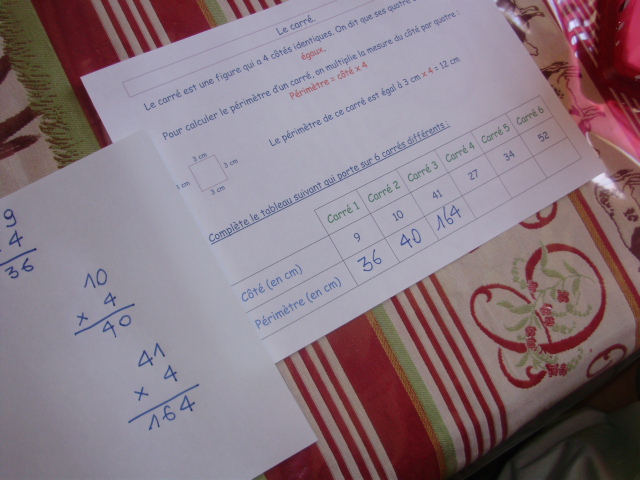 Le carré.
Le carré est une figure qui a 4 côtés identiques. On dit que ses quatre
égaux.
Pour calculer le périmètre d'un carré, on multiplie la mesure du côté par quatre :
Périmètre = côté x 4
Le périmètre de ce carré est égal à 3 cm x 4 = 12 cm
3 cm
3 cm
cm
3 cm
Complète le tableau suivant qui porte sur 6 carrés différents :
Carré 1 Carré 2 Carré 3 Carré 4 Carré 5 Carré 6
Côté (en cm) 9 10 41 27 34 52
Périmètre (en cm) 36 40 164
9
4
36
10
x 4
40
41
x 4
164